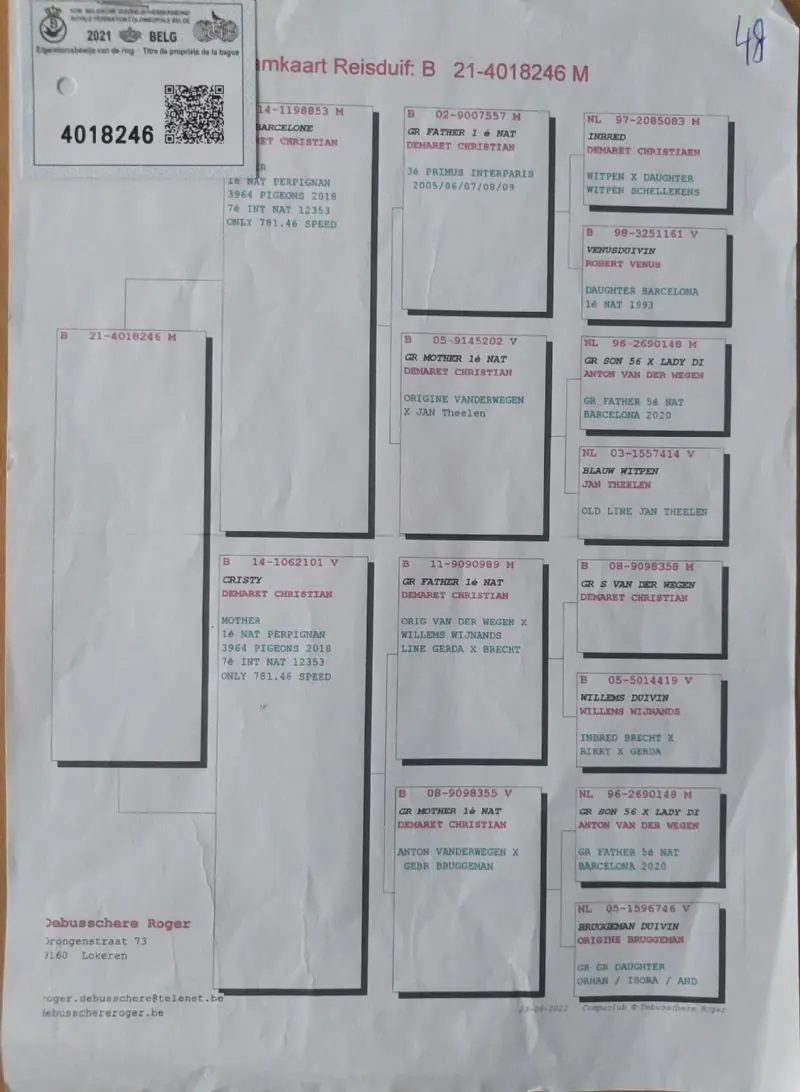 2021 BELG
Eigendomsbewijs van de ring - Titre de propriété de la bague
4018246
48
mkaart Reisduif: B 21-4018246 M
B 21-4018246 M
14-1198853 M
BARCELONE
ET CHRISTIAN
R
1é NAT PERPIGNAN
3964 PIGEONS 2018
7é INT NAT 12353
ONLY 781.46 SPEED
B 14-1062101 V
CRISTY
DEMARET CHRISTIAN
MOTHER
1é NAT PERPIGNAN
3964 PIGEONS 2018
7é INT NAT 12353
ONLY 781.46 SPEED
B 02-9007557 M
GR FATHER 1 é NAT
DEMARET CHRISTIAN
3é PRIMUS INTERPARIS
2005/06/07/08/09
B 05-9145202 V
GR MOTHER 1é NAT
DEMARET CHRISTIAN
ORIGINE VANDERWEGEN
X JAN Theelen
B 11-9090989 M
GR FATHER 1é NAT
DEMARET CHRISTIAN
ORIG VAN DER WEGEN X
WILLEMS WIJNANDS
LINE GERDA X BRECHT
B 08-9098355 V
GR MOTHER 1é NAT
DEMARET CHRISTIAN
ANTON VANDERWEGEN X
GEBR BRUGGEMAN
NL 97-2085083 M
INBRED
DEMARET CHRISTIAEN
WITPEN X DAUGHTER
WITPEN SCHELLEKENS
B 98-3251161 V
VENUSDUIVIN
ROBERT VENUS
DAUGHTER BARCELONA
1é NAT 1993
NL 96-2690148 M
GR SON 56 X LADY DI
ANTON VAN DER WEGEN
GR FATHER 5é NAT
BARCELONA 2020
NL 03-1557414 V
BLAUW WITPEN
JAN THEELEN
OLD LINE JAN THEELEN
B 08-9098358 M
GR S VAN DER WEGEN
DEMARET CHRISTIAN
B 05-5014419 V
WILLEMS DUIVIN
WILLEMS WIJNANDS
INBRED BRECHT X
RIKKY X GERDA
NL 96-2690148 M
GR SON 56 X LADY DI
ANTON VAN DER WEGEN
GR FATHER 5é NAT
BARCELONA 2020
NL 05-1596746 V
BRUGGEMAN DUIVIN
ORIGINE BRUGGEMAN
GR GR DAUGHTER
ORHAN / ISORA / AND
Debusschere Roger
Drongenstraat 73
9160 Lokeren
roger.debusschere@telenet.be
debusschereroger.be
Compuclub © Debusschere Roger